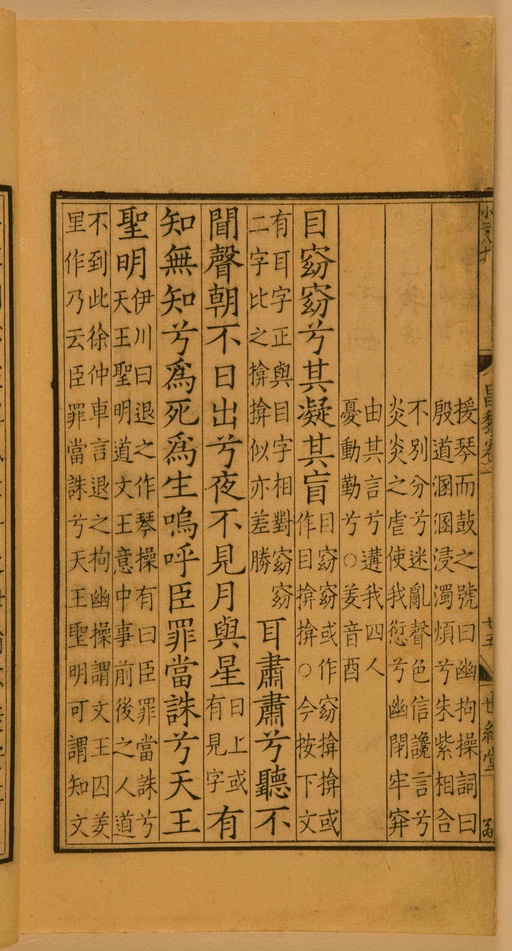 昌黎卷一
廿五
世綵堂
援琴而鼓之號曰幽拘操詞曰
殷道溷溷浸濁煩兮朱紫相合
不別分兮迷亂聲色信讒言兮
炎炎之虐使我愆兮幽閉牢穽
由其言兮遘我四人
憂動勤兮○羑音酉
目窈窈兮其凝其盲
目窈窈或作窈揜揜或
作目揜揜○今按下文
有耳字正與目字相對窈窈
二字比之揜揜似亦差勝
耳肅肅兮聽不
聞聲朝不日出兮夜不見月與星
日上或
有見字
有
知無知兮爲死爲生嗚呼臣罪當誅兮天王
聖明
伊川曰退之作琴操有曰臣罪當誅兮
天王聖明道文王意中事前後之人道
不到此徐仲車言退之拘幽操謂文王囚羑
里作乃云臣罪當誅兮天王聖明可謂知文